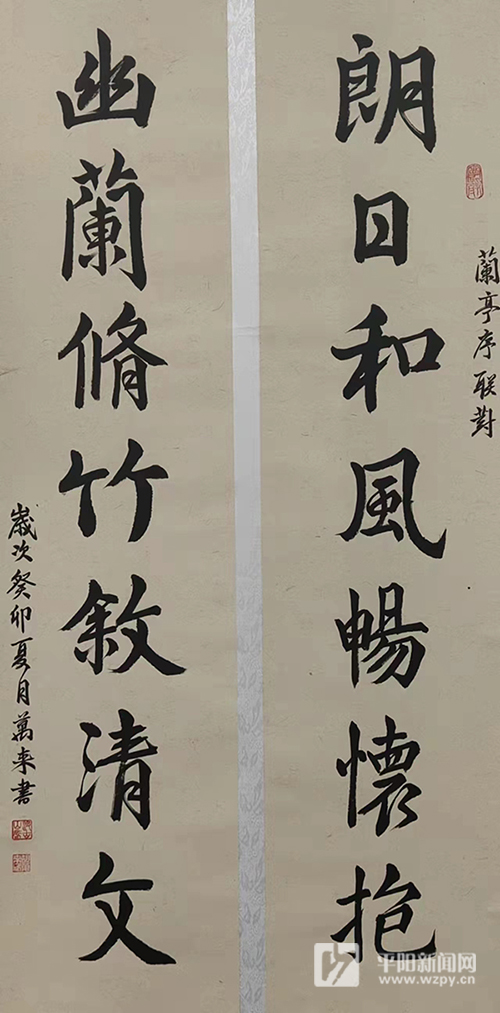 蘭亭序联對
朗日和風暢懷抱
幽蘭脩竹敘清文
歲次癸卯夏月萬来書
平阳新闻网
www.wzpy.cn